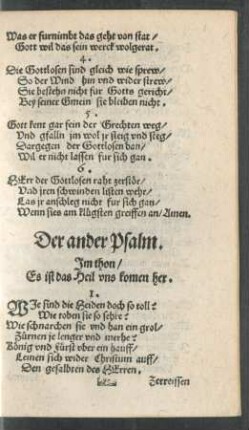 Was er furnimbt das geht von stat/
Gott wil das sein werck wolgerat.
4.
Die Gottlosen sind gleich wie sprew/
So der Wind hin und wider strew/
Sie bestehn nicht fur Gotts gericht/
Bey seiner Gmein sie bleiben nicht.
5.
Gott kent gar fein der Grechten weg/
Und gfalln jm wol jr steig und steg/
Dargegen der Gottlosen ban/
Wil er nicht lassen fur sich gan.
6.
HErr der Gottlosen raht zerstör/
Und jren schwinden listen wehr/
Las jr anschleg nicht fur sich gan/
Wenn sies am klügsten greiffen an/ Amen.
Der ander Psalm.
Im thon/
Es ist das Heil vns komen her.
1.
WIe sind die Heiden doch so toll?
Wie toben sie so sehre?
Wie schnarchen sie vnd han ein grol/
Zürnen je lenger vnd mehre?
König vnd Fürst vber ein hauff/
Leinen sich wider Christum auff/
Den gesalbten des HErren.
Zerreissen